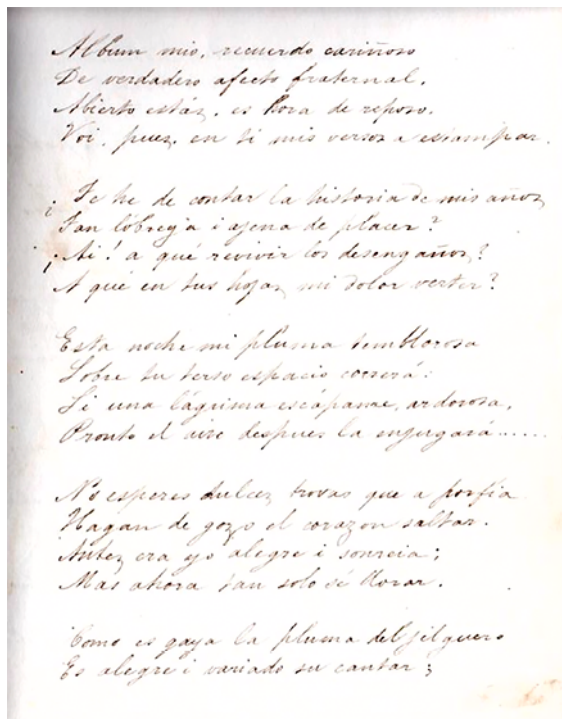 Album mio, recuerdo cariñoso
De verdadero afecto fraternal,
Abierto estás, es hora de reposo.
Voi, pues, en ti mis versos a estampar.
¿Te he de contar la historia de mis años
Tan lóbrega i ajena de placer?
¡Ai! a qué revivir los desengaños?
A qué en tus hojas mi dolor verter?
Esta noche mi pluma temblorosa
Sobre tu terso espacio correrá:
Si una lágrima escápame, ardorosa,
Pronto el aire despues la enjugará......
No esperes dulces trovas que a porfia
Hagan de gozo el corazon saltar.
Antes era yo alegre i sonreia;
Mas ahora tan solo sé llorar.
Como es gaya la pluma del jilguero
Es alegre i variado su cantar;